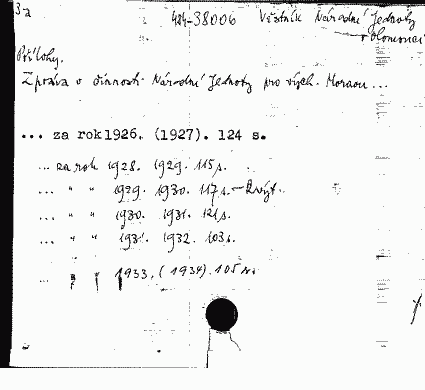 3a
424-38006 Věstník Národní Jednoty
v Olomouci
Přílohy.
Zpráva o činnosti Národní Jednoty pro vých. Moravu ...
... za rok 1926. (1927). 124 s.
... za rok 1928. 1929. 115 s.
... " " 1929. 1930. 117 s.
... " " 1930. 1931. 121 s.
... " " 1931. 1932. 103 s.
... " " 1933. (1934). 105 s.